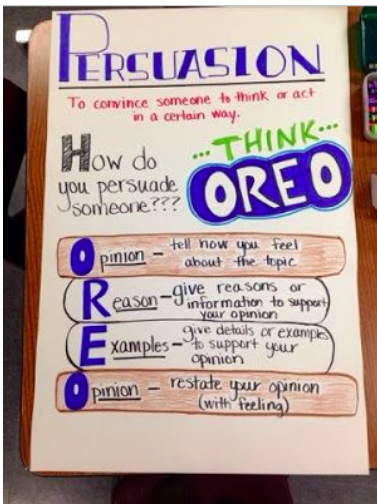 PERSUASION
To convince someone to think or act
in a certain way.
How do
you persuade
someone???
...THINK...
OREO
Opinion – tell how you feel
about the topic
Reason – give reasons or
information to support
your opinion
Examples – give details or examples
to support your
opinion
Opinion – restate your opinion
(with feeling)